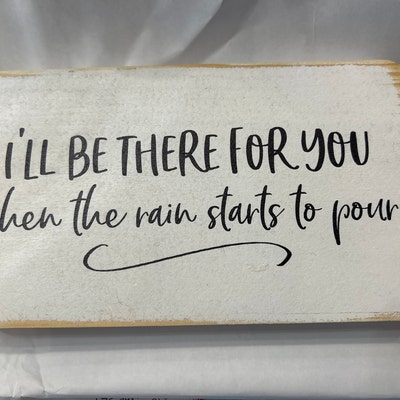 I'LL BE THERE FOR YOU
hen the rain starts to pour